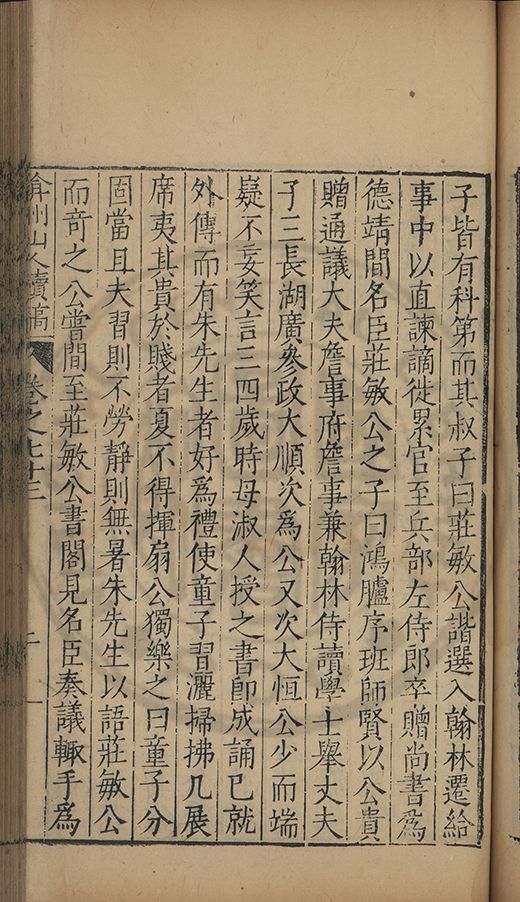 子皆有科第而其叔子曰莊敏公諧選入翰林遷給
事中以直諫謫徙累官至兵部左侍郎卒贈尚書為
德靖間名臣莊敏公之子曰鴻臚序班師賢以公貴
贈通議大夫詹事府詹事兼翰林侍讀學士舉丈夫
子三長湖廣參政大順次為公又次大恒公少而端
嶷不妄笑言三四歲時母淑人授之書即成誦已就
外傅而有朱先生者好為禮使童子習灑掃拂几展
席夷其貴於賤者夏不得揮扇公獨樂之曰童子分
固當且夫習則不勞靜則無暑朱先生以語莊敏公
而奇之公嘗間至莊敏公書閣見名臣奏議輒手為
弇州山人續稿
卷之七十三